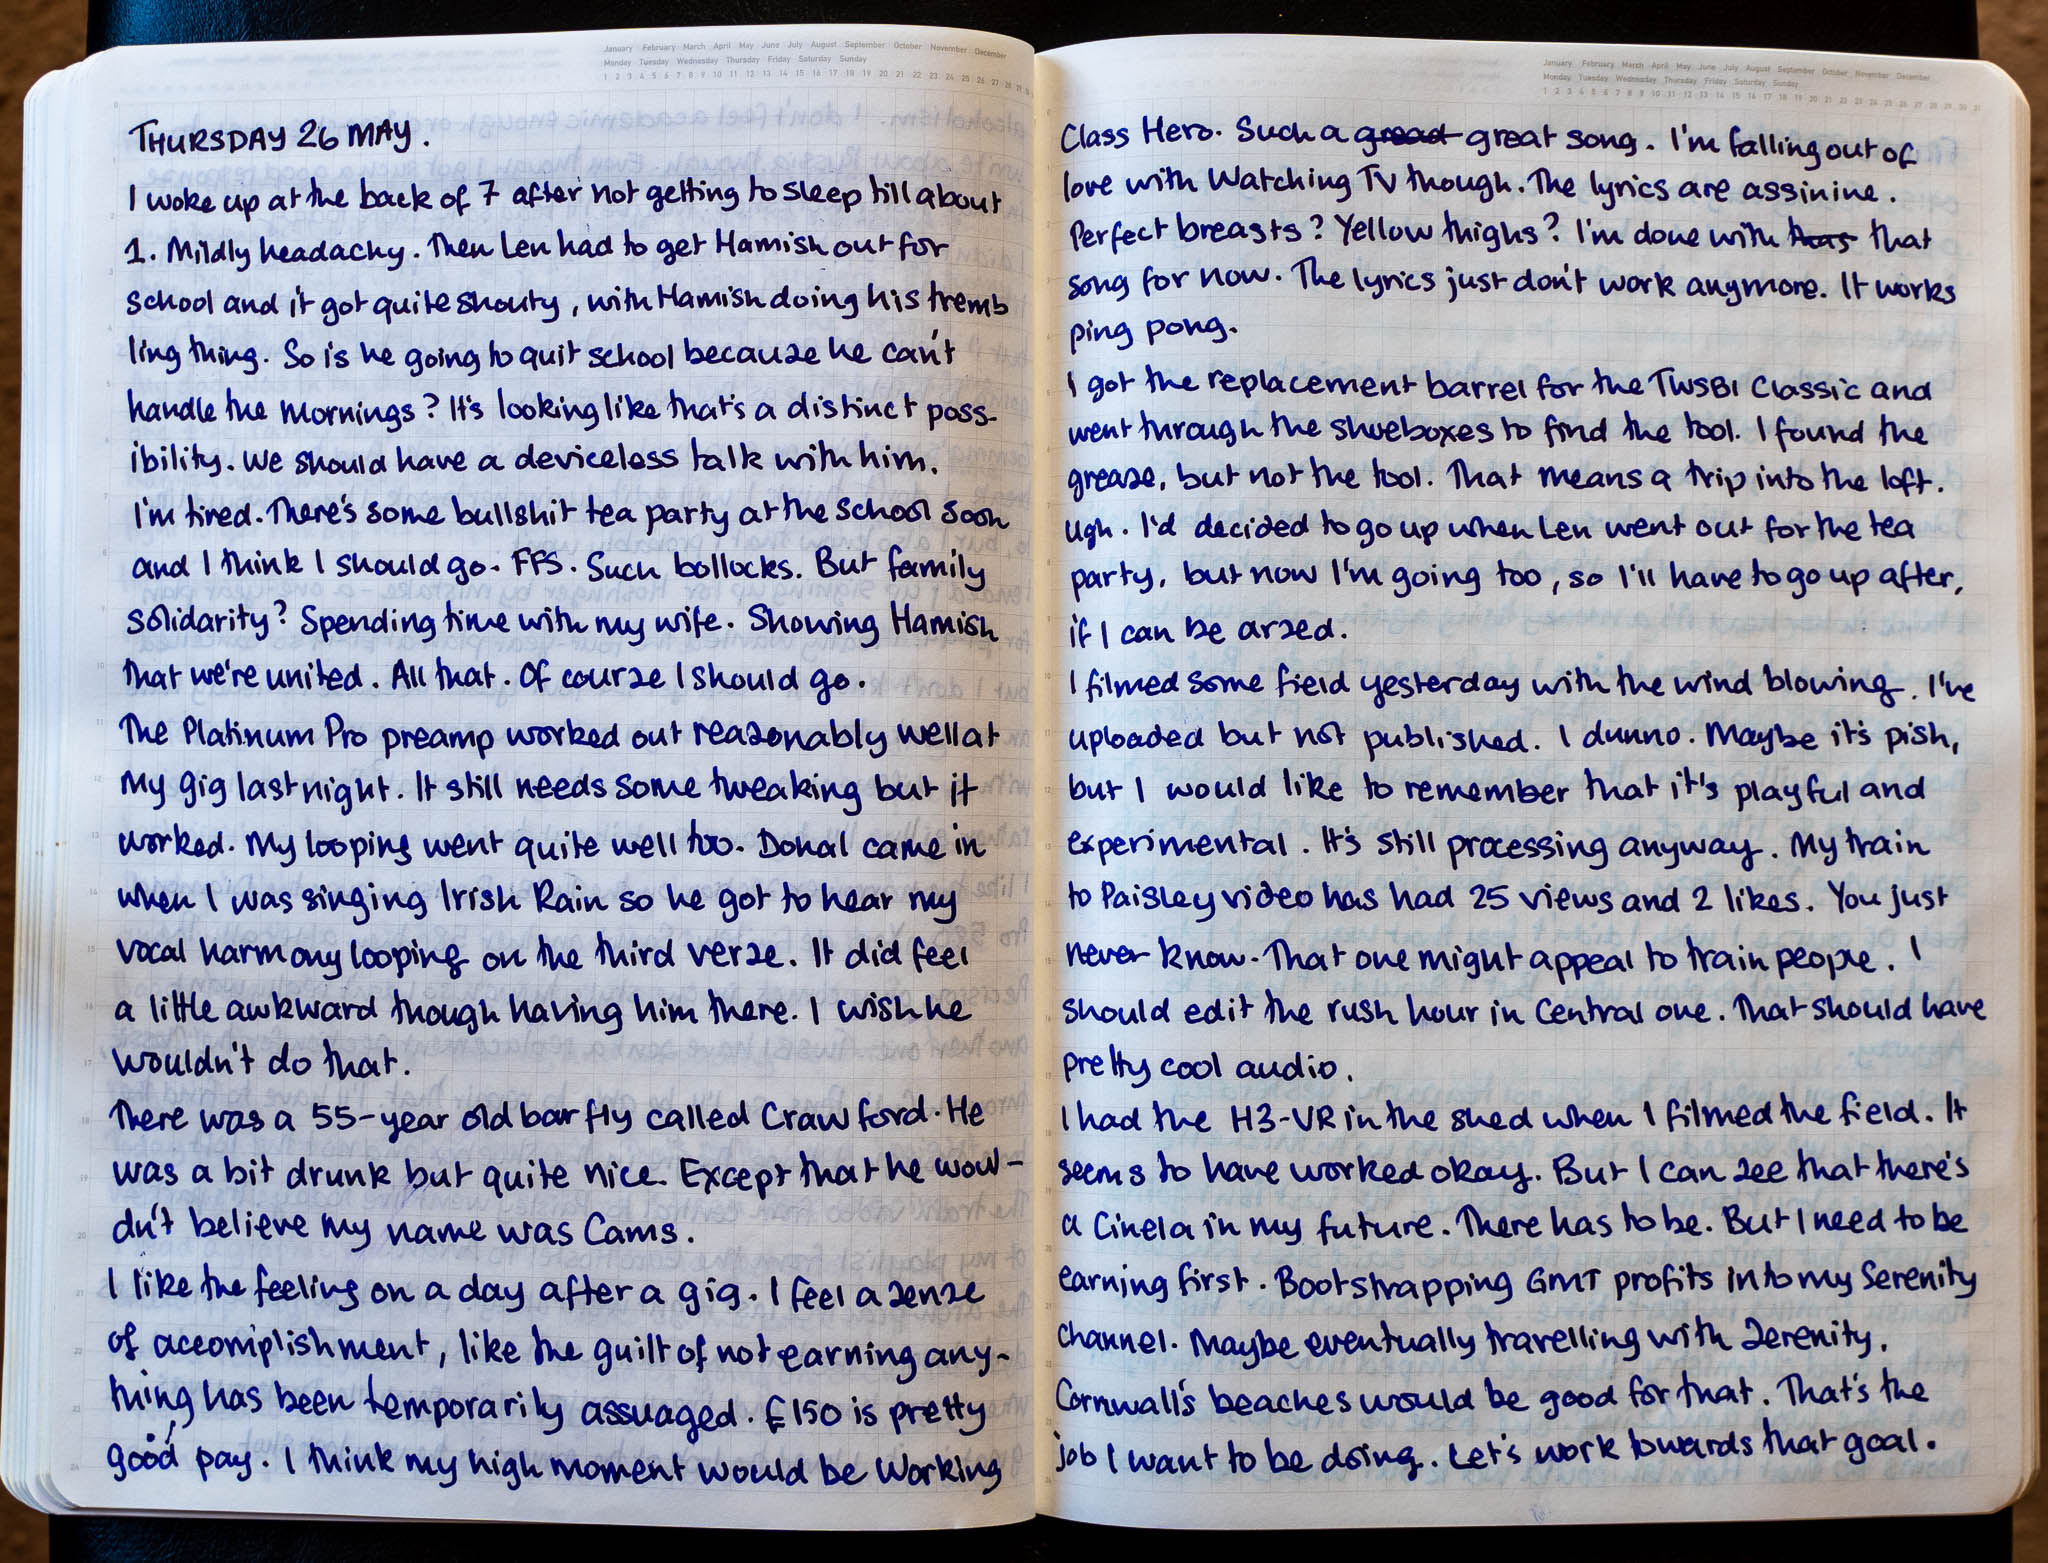 January February March April May June July August September October November December
Monday Tuesday Wednesday Thursday Friday Saturday Sunday
1 2 3 4 5 6 7 8 9 10 11 12 13 14 15 16 17 18 19 20 21 22 23 24 25 26 27 28
THURSDAY 26 MAY.
I woke up at the back of 7 after not getting to sleep till about
1. Mildly headachy. Then Len had to get Hamish out for
school and it got quite shouty, with Hamish doing his tremb
ling thing. So is he going to quit school because he can't
handle the mornings? It's looking like that's a distinct poss-
ibility. We should have a deviceless talk with him.
I'm tired. There's some bullshit tea party at the school soon
and I think I should go. FFS. Such bollocks. But family
solidarity? Spending time with my wife. Showing Hamish
that we're united. All that. Of course I should go.
The Platinum Pro preamp worked out reasonably well at
my gig last night. It still needs some tweaking but it
worked. My looping went quite well too. Donal came in
when I was singing Irish Rain so he got to hear my
vocal harmony looping on the third verse. It did feel
a little awkward though having him there. I wish he
wouldn't do that.
There was a 55-year old bar fly called Crawford. He
was a bit drunk but quite nice. Except that he woul-
dn't believe my name was Cams.
I like the feeling on a day after a gig. I feel a sense
of accomplishment, like the guilt of not earning any-
thing has been temporarily assuaged. £150 is pretty
good pay. I think my high moment would be Working
January February March April May June July August September October November December
Monday Tuesday Wednesday Thursday Friday Saturday Sunday
1 2 3 4 5 6 7 8 9 10 11 12 13 14 15 16 17 18 19 20 21 22 23 24 25 26 27 28 29 30 31
Class Hero. Such a great song. I'm falling out of
love with Watching TV though. The lyrics are assinine.
Perfect breasts? Yellow thighs? I'm done with that
song for now. The lyrics just don't work anymore. It works
ping pong.
I got the replacement barrel for the TWSBI Classic and
went through the shoeboxes to find the tool. I found the
grease, but not the tool. That means a trip into the loft.
Ugh. I'd decided to go up when Len went out for the tea
party, but now I'm going too, so I'll have to go up after,
if I can be arsed.
I filmed some field yesterday with the wind blowing. I've
uploaded but not published. I dunno. Maybe it's pish,
but I would like to remember that it's playful and
experimental. It's still processing anyway. My train
to Paisley video has had 25 views and 2 likes. You just
never know. That one might appeal to train people. I
should edit the rush hour in Central one. That should have
pretty cool audio.
I had the H3-VR in the shed when I filmed the field. It
seems to have worked okay. But I can see that there's
a Cinela in my future. There has to be. But I need to be
earning first. Bootstrapping GMT profits into my Serenity
channel. Maybe eventually travelling with Serenity.
Cornwall's beaches would be good for that. That's the
job I want to be doing. Let's work towards that goal.